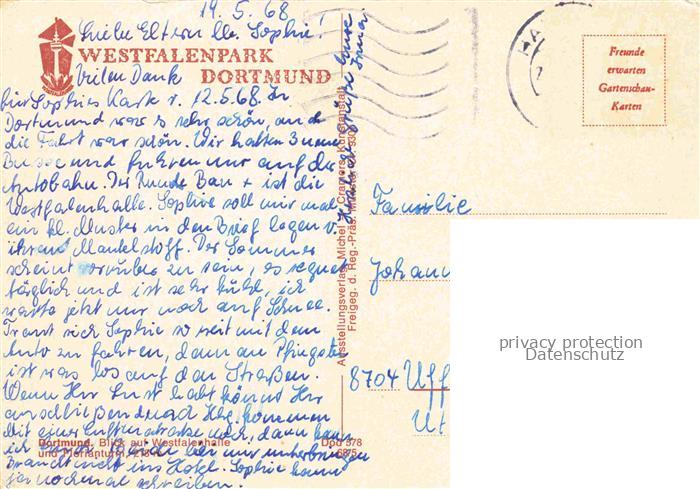 19.5.68
Liebe Eltern, lb. Sophie!
WESTFALENPARK
DORTMUND
Vielen Dank
für Sophies Karte v. 12.5.68. In
Dortmund war es sehr schön, auch
die Fahrt war schön. Wir hatten 3 neue
Busse und fuhren nur auf der
Autobahn. Der Runde Bau + ist die
Westfalenhalle. Sophie soll mir mal
ein kl. Muster in den Brief legen v.
ihrem Mantelstoff. Der Sommer
scheint vorüber zu sein, es regnet
täglich und ist sehr kühl, ich
warte jetzt nur noch auf Schnee.
Traut sich Sophie so weit mit dem
Auto zu fahren, denn an Pfingsten
ist was los auf den Straßen.
Wenn Ihr Lust habt könnt Ihr
anschließend nach kommen
Mit einer Luftmatratze
ich bei mir unterbringen
Braucht nicht ins Hotel. Sophie kann
ja nochmal schreiben.
Herzliche Grüße Eure
Irma
Dortmund. Blick auf Westfalenhalle
und Florianturm, 218 m
Dod 378
6875
Ausstellungsverlag Michel Cramers Kunstanstalt
Freigeg. d. Reg.-Präs. Münster
Freunde
erwarten
Gartenschau-
Karten
Familie
Johann
8704 Uff
privacy protection
Datenschutz